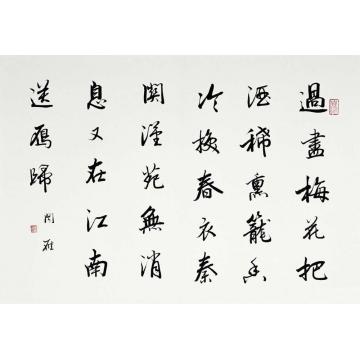 過盡梅花把
酒稀熏籠香
冷換春衣秦
關漢苑無消
息又在江南
送雁歸
聞雁